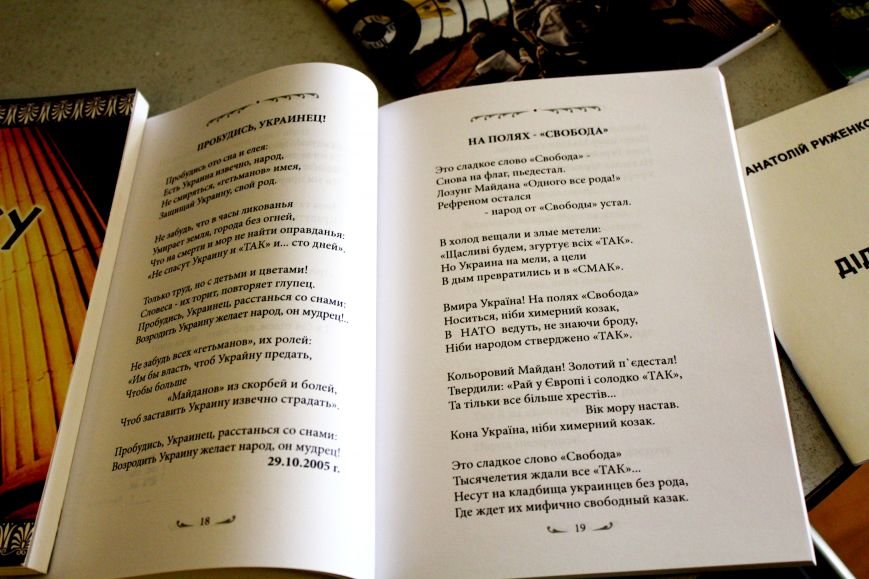 ПРОБУДИСЬ, УКРАИНЕЦ!
Пробудись ото сна и елея:
Есть Украина извечно, народ,
Не смиряться, «гетьманов» имея,
Защищай Украину, свой род.
Не забудь, что в часы ликованья
Умирает земля, города без огней,
Что на смерти и мор не найти оправданья:
«Не спасут Украину и «ТАК» и... сто дней».
Только труд, но с детьми и цветами!
Словеса - их торит, повторяет глупец.
Пробудись, Украинец, расстанься со снами:
Возродить Украину желает народ, он мудрец!..
Не забудь всех «гетьманов», их ролей:
«Им бы власть, чтоб Украйну предать,
Чтобы больше
«Майданов» из скорбей и болей,
Чтоб заставить Украину извечно страдать».
Пробудись, Украинец, расстанься со снами:
Возродить Украину желает народ, он мудрец!
29.10.2005 г.
18
НА ПОЛЯХ - «СВОБОДА»
Это сладкое слово «Свобода» -
Снова на флаг, пьедестал.
Лозунг Майдана «Одного все рода!»
Рефреном остался
- народ от «Свободы» устал.
В холод вещали и злые метели:
«Щасливі будем, згуртує всіх «ТАК».
Но Украина на мели, а цели
В дым превратились и в «СМАК».
Вмира Україна! На полях «Свобода»
Носиться, ніби химерний козак,
В НАТО ведуть, не знаючи броду,
Ніби народом стверджено «ТАК».
Кольоровий Майдан! Золотий п`єдестал!
Твердили: «Рай у Європі і солодко «ТАК»,
Та тільки все більше хрестів...
Вік мору настав.
Кона Україна, ніби химерний козак.
Это сладкое слово «Свобода»
Тысячелетия ждали все «ТАК»...
Несут на кладбища украинцев без рода,
Где ждет их мифично свободный казак.
19
АНАТОЛІЙ РИЖЕНКО